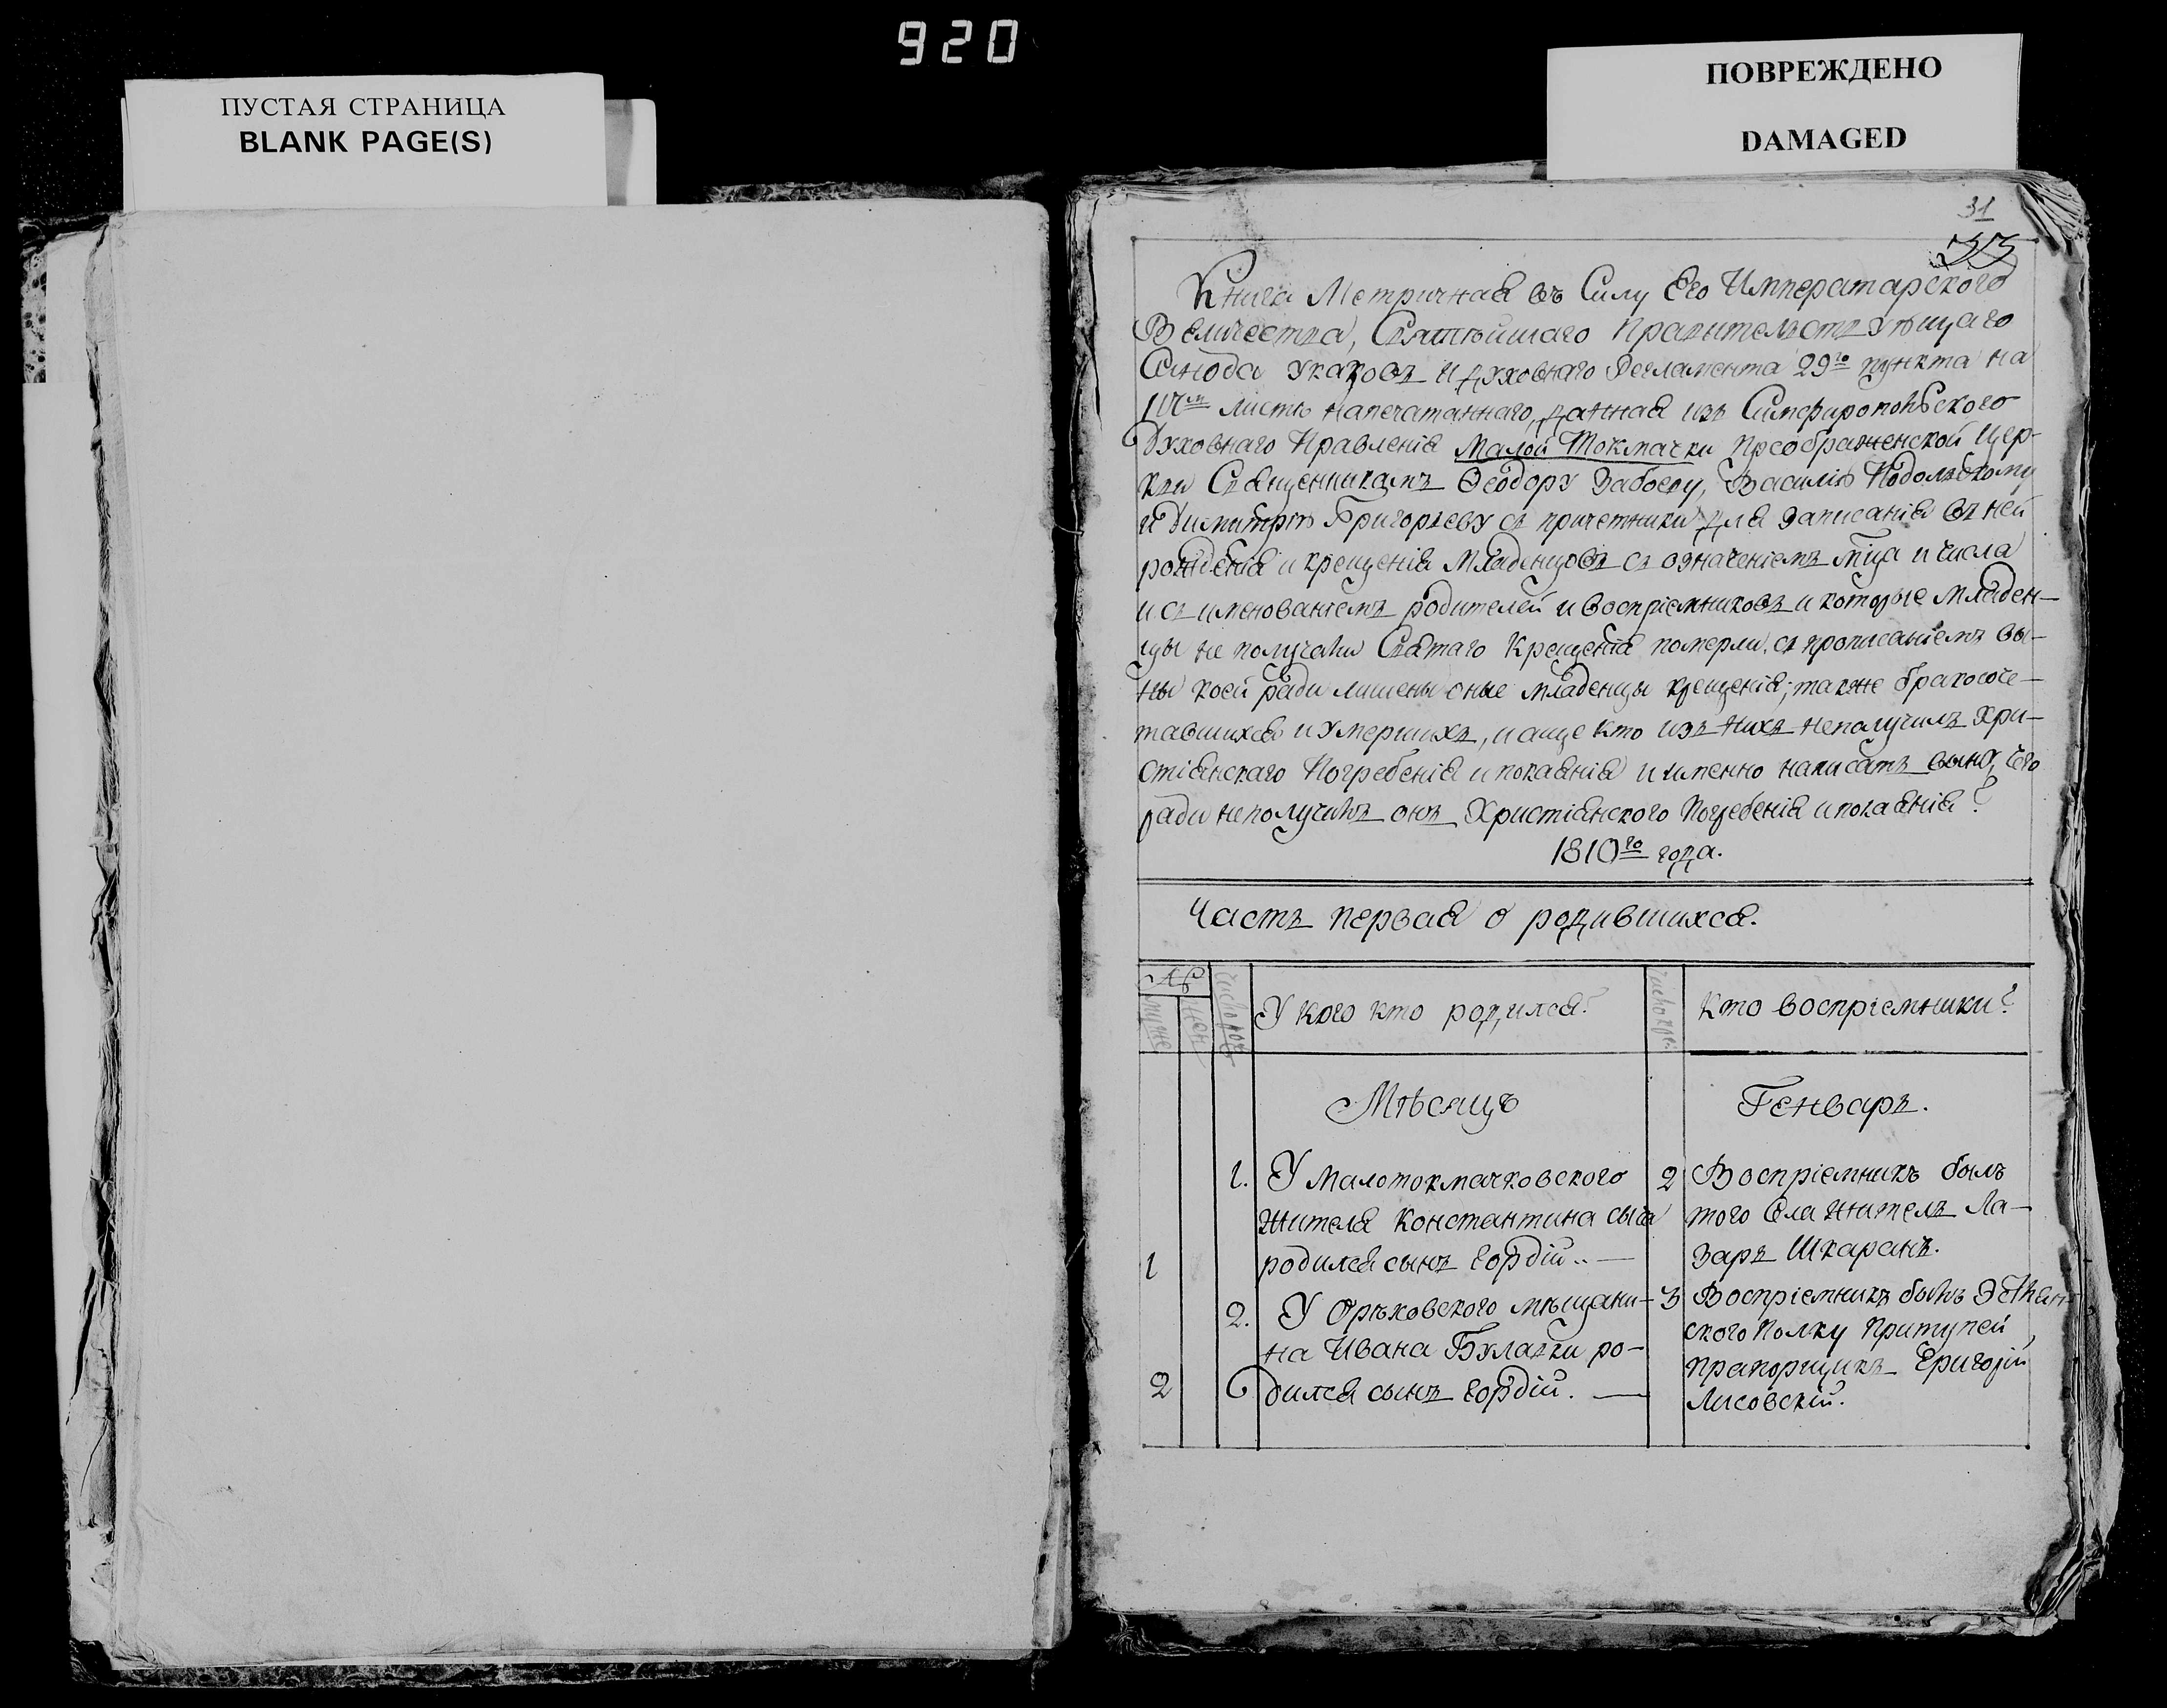 920
ПУСТАЯ СТРАНИЦА
BLANK PAGE(S)
ПОВРЕЖДЕНО
DAMAGED
31
33
Книга Метричная въ Силу Его Императарского
Величества, Святѣйшаго Правительствующаго
Синода указовъ и духовнаго Регламента 29го пункта на
листѣ напечатаннаго, данная изъ Симферопольского
Духовнаго Правленія Малой Токмачки Преображенской Цер-
кви Священникамъ Ѳеодору Забоеву, Василію Подольскому
и Димитрію Григорьеву съ причетники для записанія въ ней
рожденія и крещенія Младенцовъ съ означеніемъ мца и числа
и съ именованіемъ родителей и воспріемниковъ и которые младен-
цы не получивъ Святаго Крещенія померли, съ прописаніемъ ви-
ны коей ради лишены оные младенцы крещенія; также бракосоче-
тавшихся и умершихъ, и аще кто изъ нихъ неполучилъ Хри-
стіянскаго Погребенія и покаянія и именно написать вину, чего
ради неполучилъ онъ Христіянского Погребенія и покаянія?
1810го года.
Часть первая о родившихся.
№
муже
жен
Число рож
У кого кто родился?
Число кре:
Кто воспріемники?
Мѣсяцъ
Генварь.
1. У Малотокмачковского
жителя Константина
1 родился сынъ Гордій.. —
2 Воспріемникъ былъ
того села житель Ла-
зарь Шкаранъ.
2. У Орѣховского мѣщани-
на Ивана Булавки ро-
2 дился сынъ Гордій. —
3 Воспріемникъ былъ
ского Полку Притупей
прапорщикъ Григорій
Лисовскій.